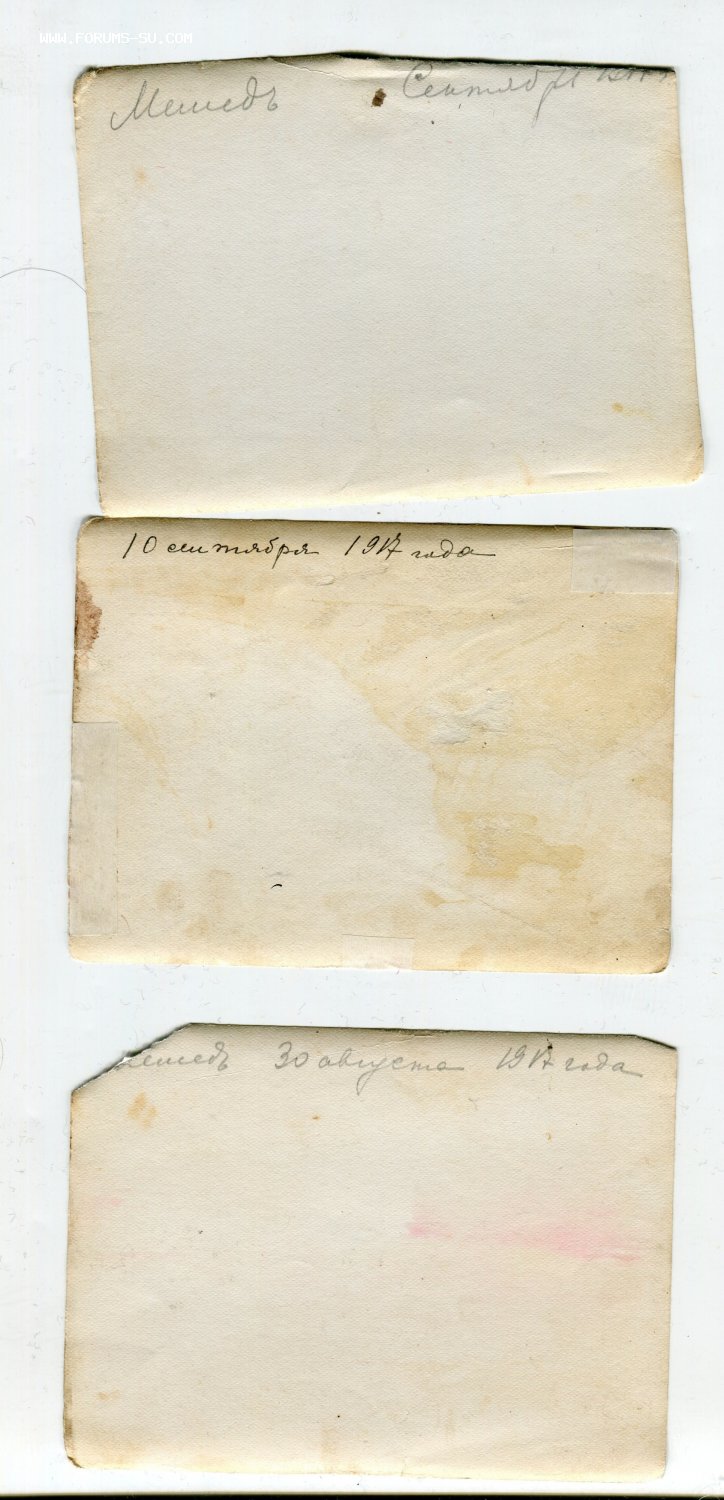 WWW.FORUMS-SU.COM
Мешедъ Сентябрь
10 сентября 1917 года
ешедъ 30 августа 1917 года